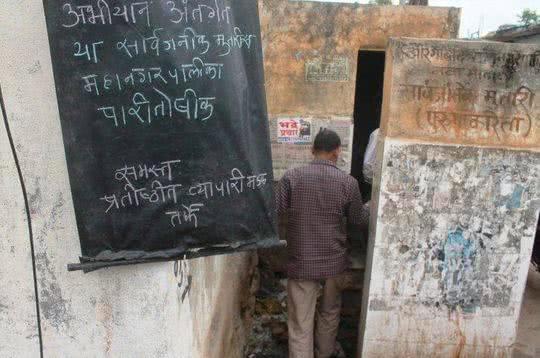 अभीयान अंतर्गत
या सार्वजनीक मुतारीस
महानगरपालीका
पारीतोषीक
समस्त
प्रतीष्ठीत व्यापारी मंडळ
तर्फे
भव्य
प्रचार
सार्वजनिक मुतारी
(पुरुषाकरिता)